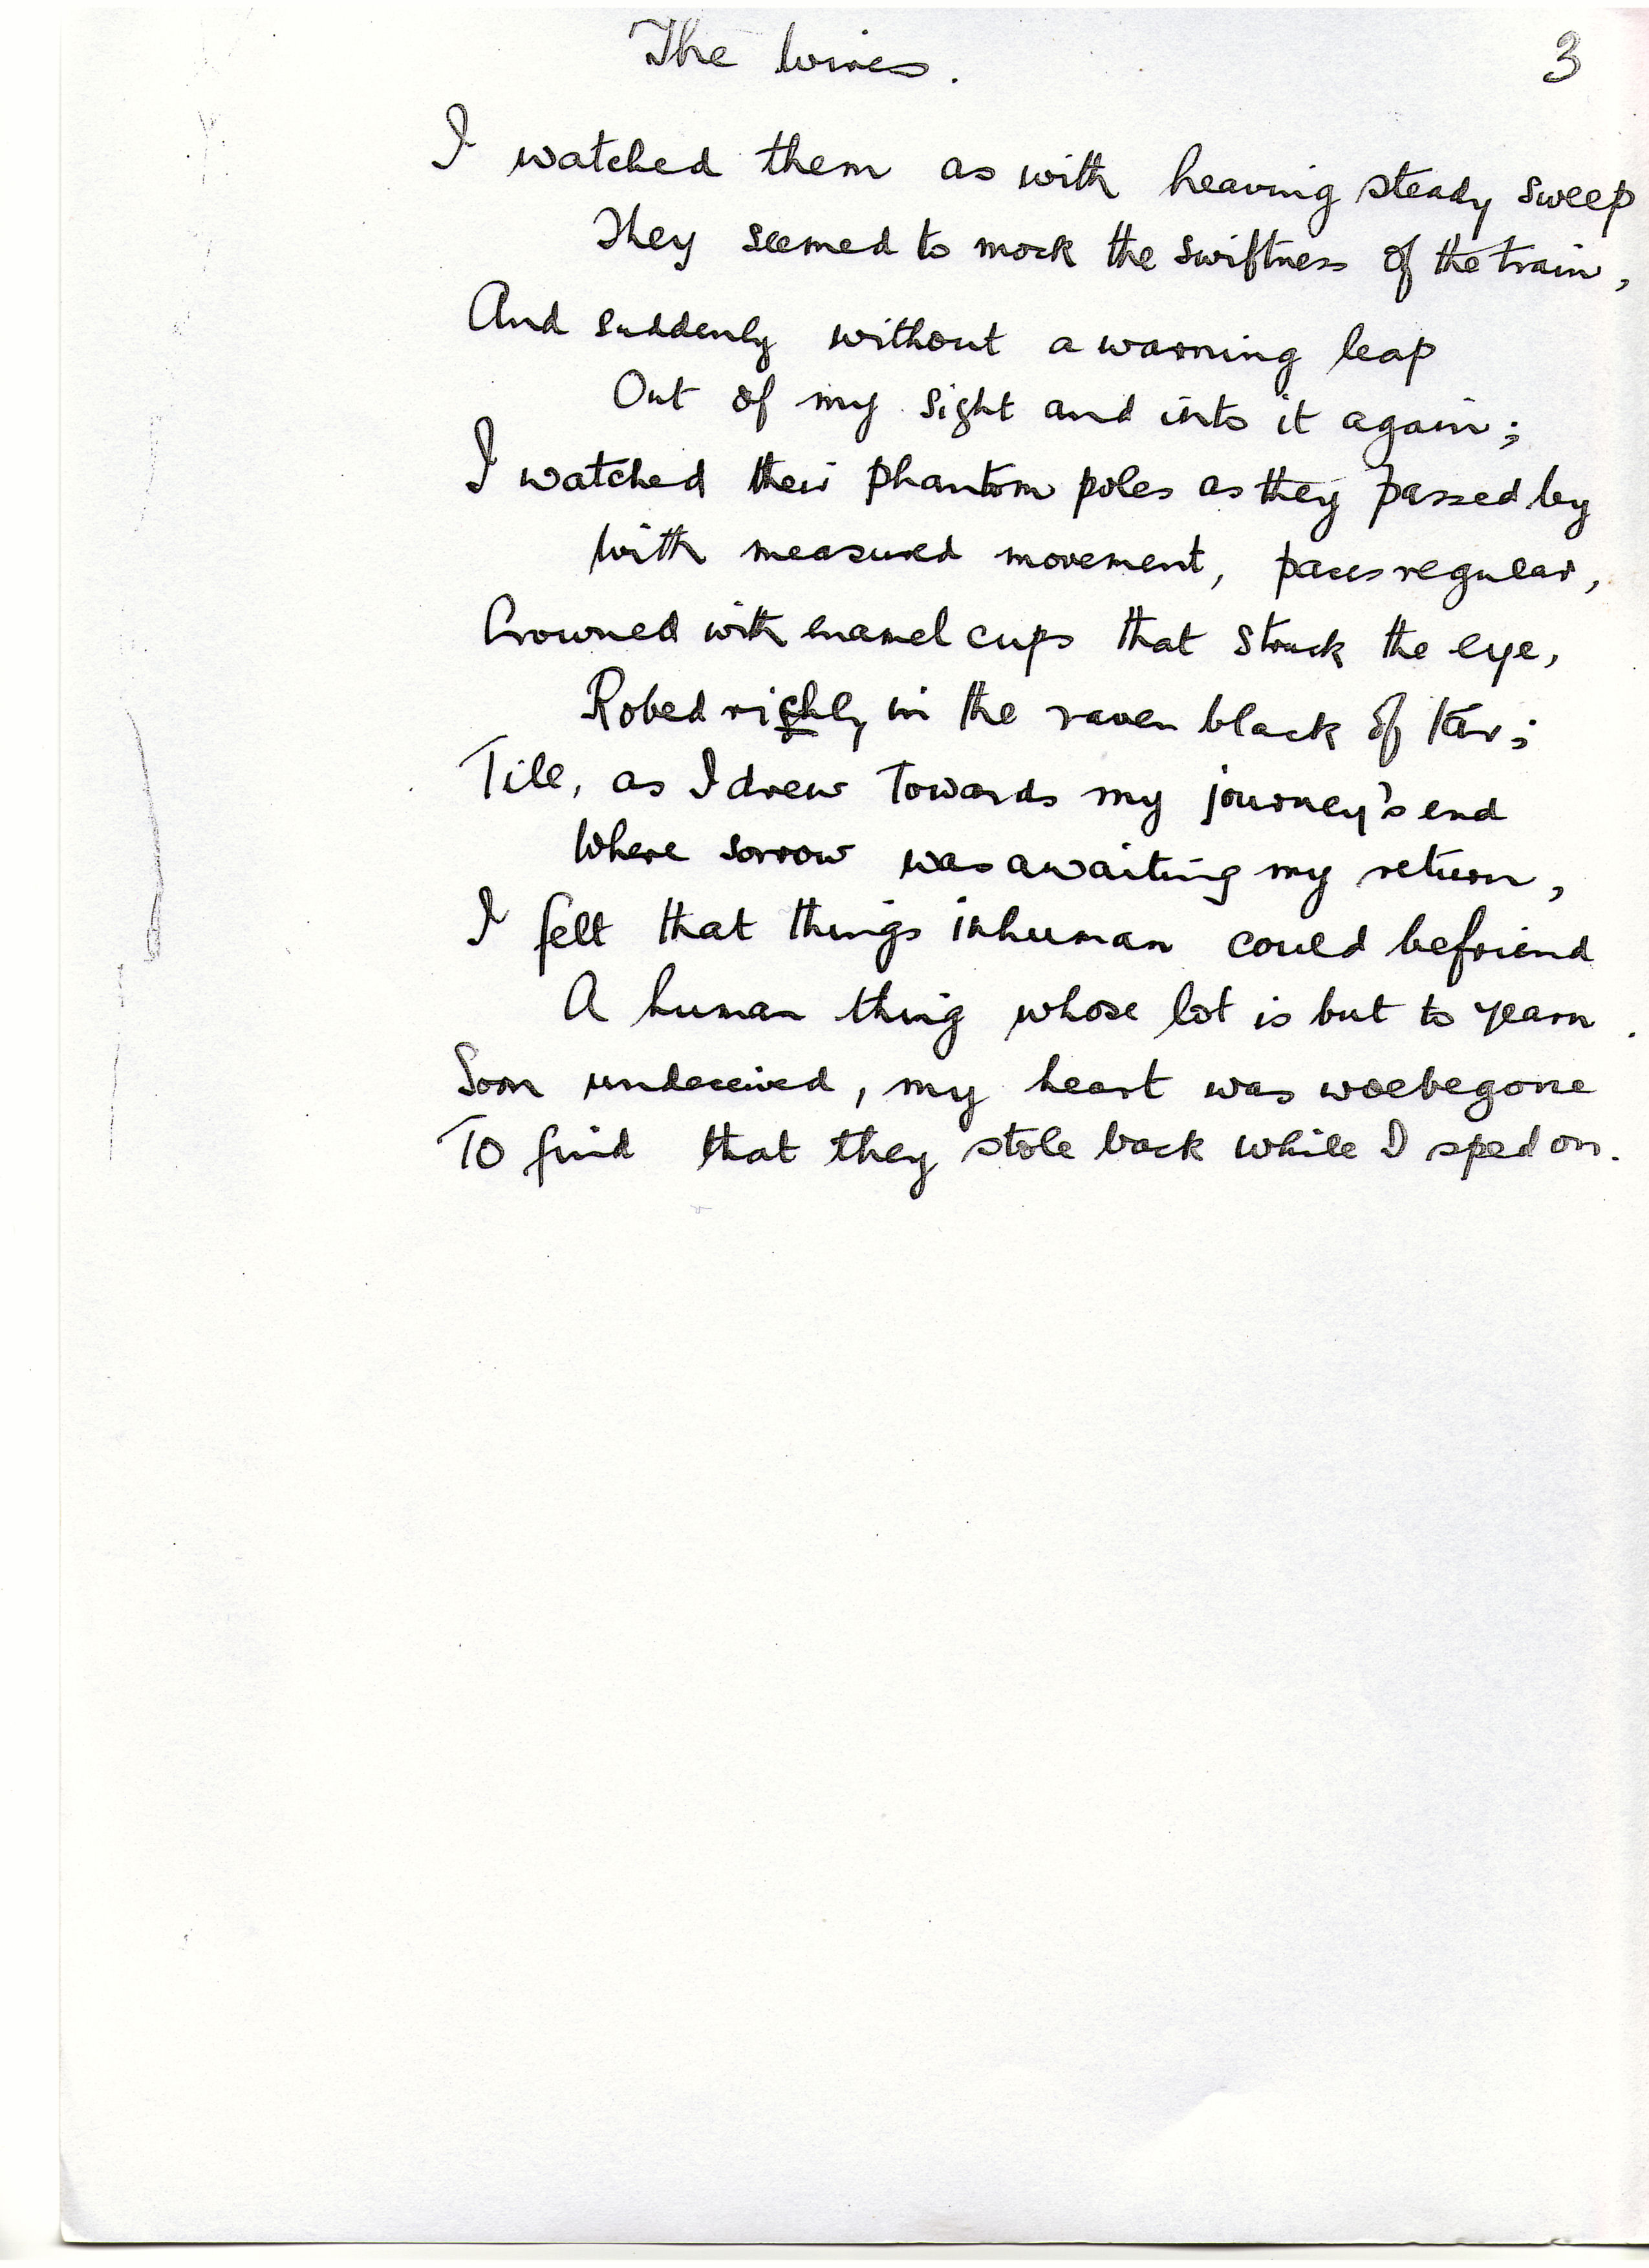 The Wires. 3
I watched them as with heaving steady sweep
They seemed to mock the swiftness of the train,
And suddenly without a warning leap
Out of my sight and into it again;
I watched their phantom poles as they passed by
With measured movement, paces regular,
Crowned with enamel cups that struck the eye,
Robed richly in the raven black of tar;
Till, as I drew towards my journey's end
Where sorrow was awaiting my return,
I felt that things inhuman could befriend
A human thing whose lot is but to yearn.
Soon undeceived, my heart was woebegone
To find that they stole back while I sped on.